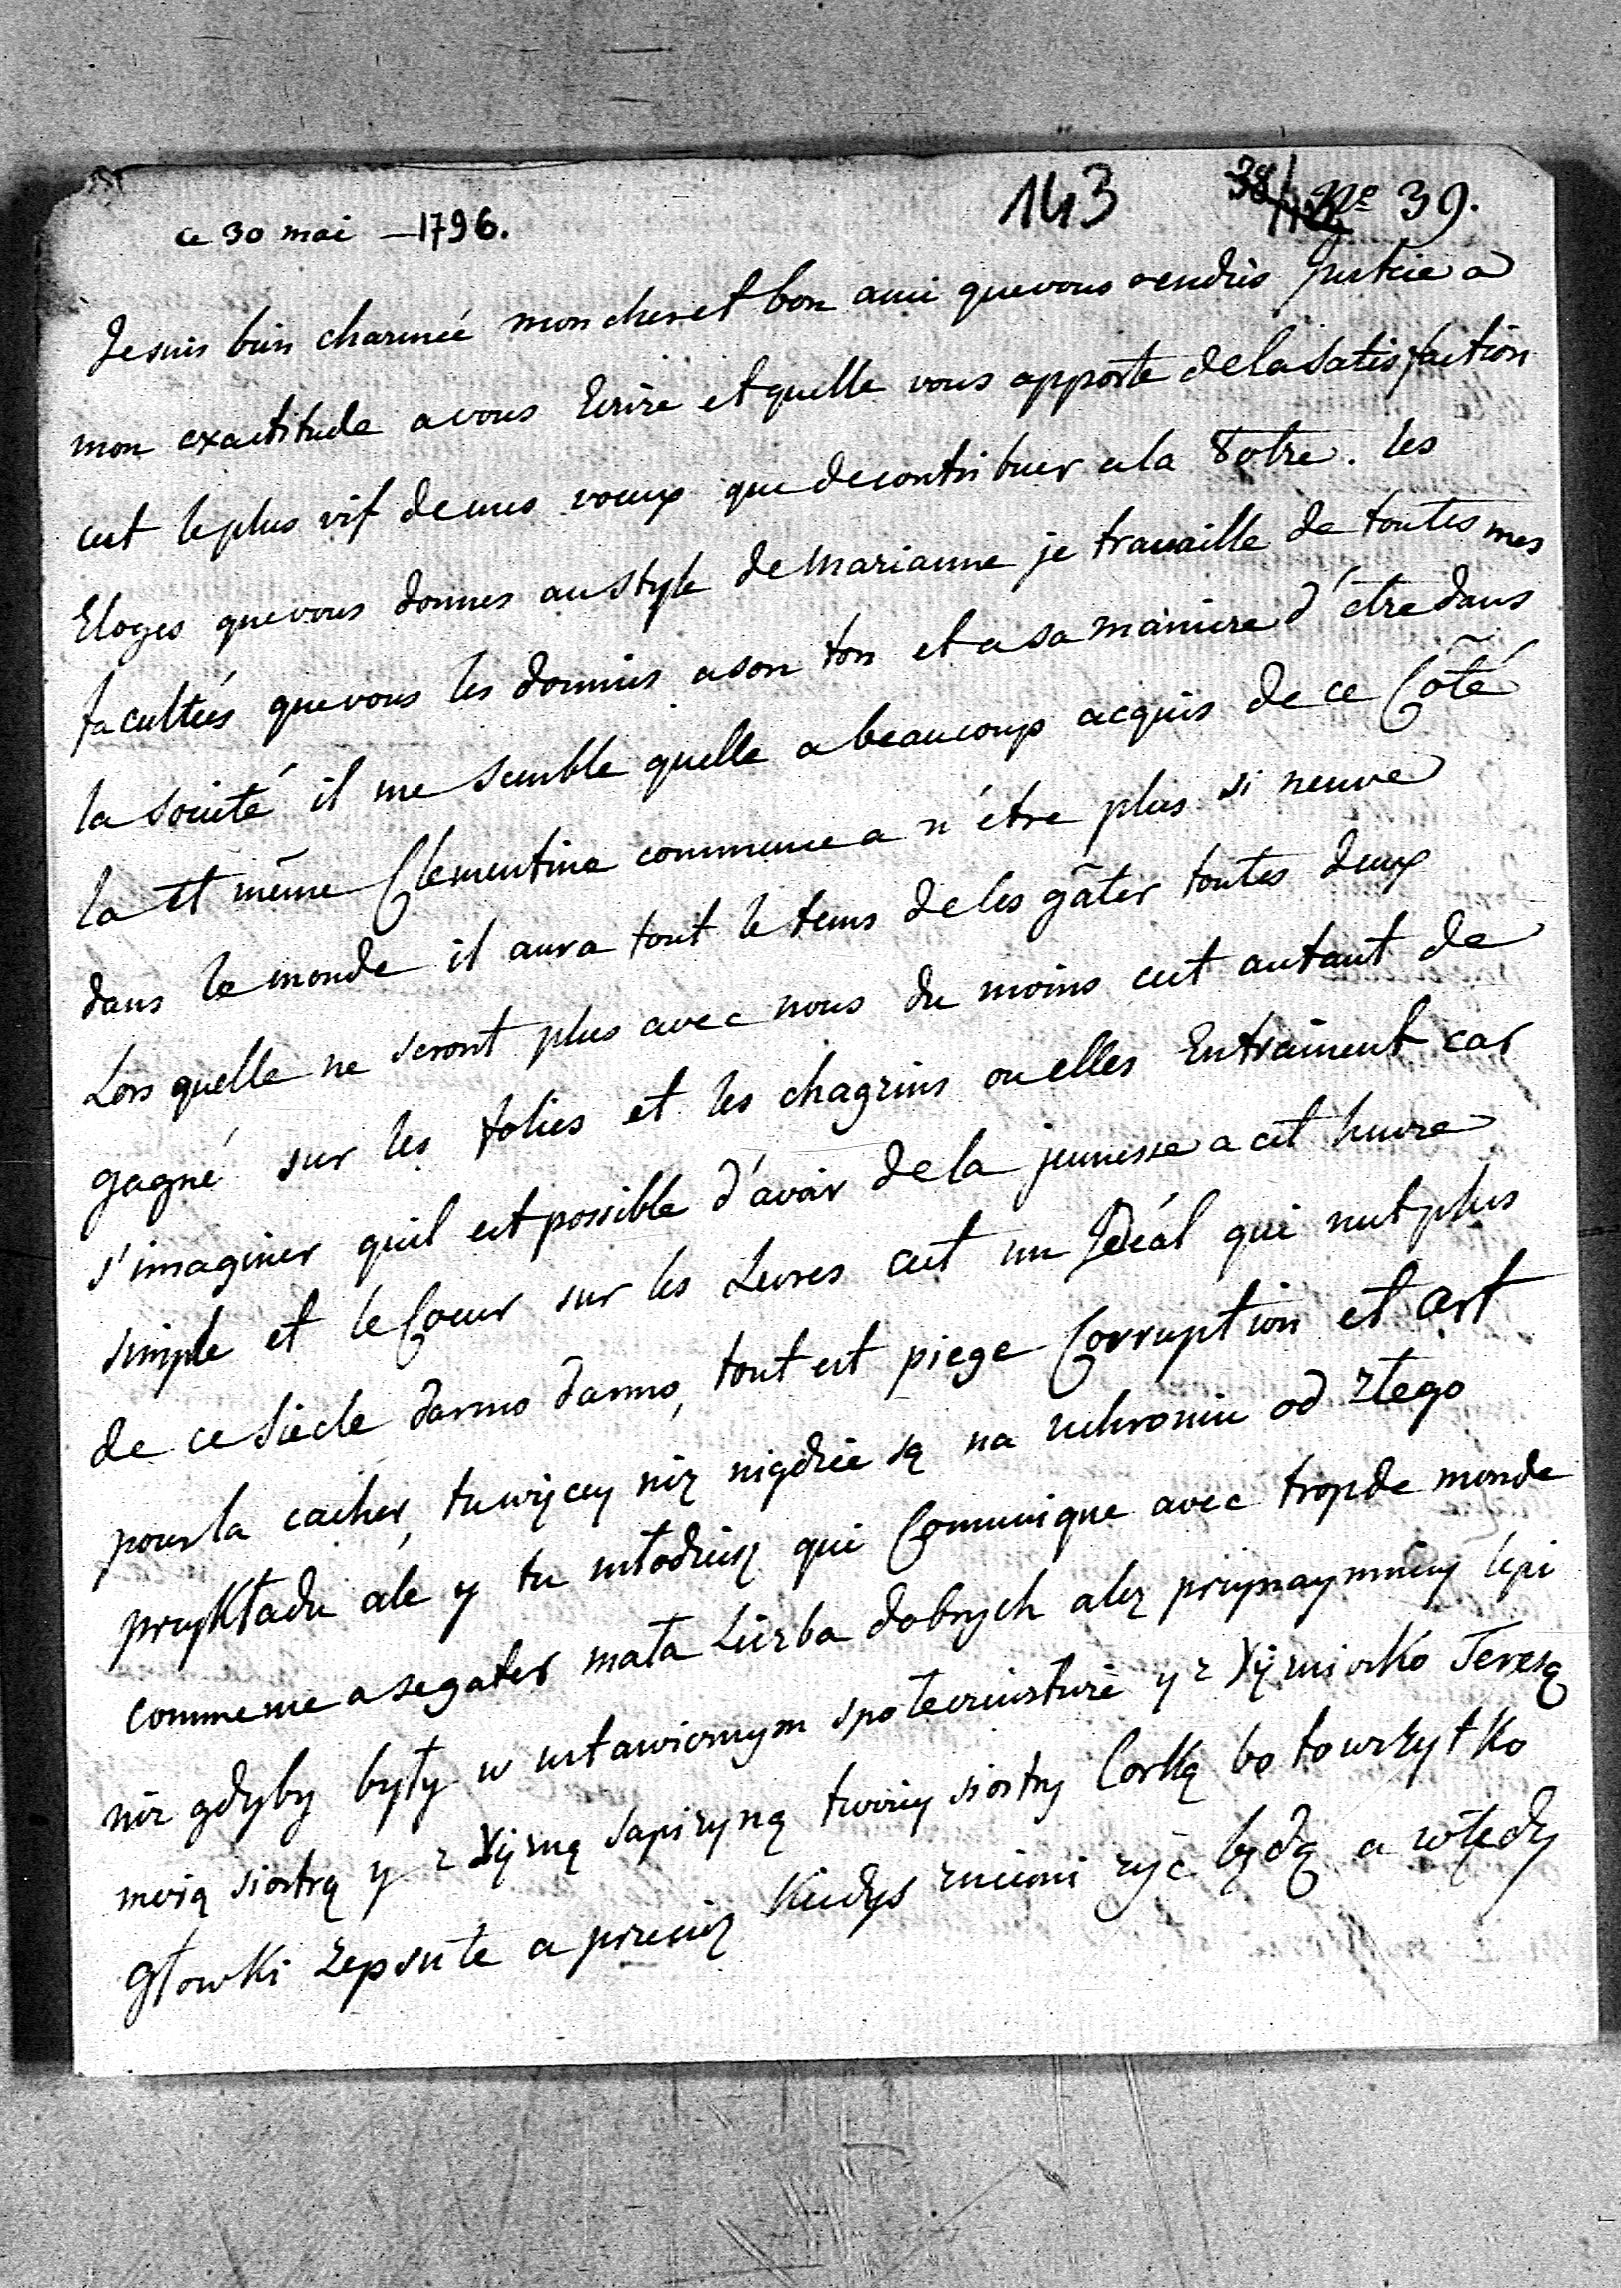 ce 30 mai — 1796.
143
38
No 39.
Je suis bien charmée mon cher et bon ami que vous rendiés justice a
mon exactitude a vous Ecrire et quelle vous apporte de la satisfaction
cest le plus vif de mes voeux que de contribuer a la Votre. les
Eloges que vous donnes au style de Marianne je travaille de toutes mes
facultées que vous les donniés a son ton et a sa maniere d'étre dans
la societé il me semble quelle a beaucoup acquis de ce Côté
la et même Clementine commence a n'étre plus si neuve
dans le monde il aura tout le tems de les gâter toutes deux
Lors quelle ne seront plus avec nous du moins cest autant de
gagné sur les folies et les chagrins ou elles Entrainent car
s'imaginer quil est possible d'avoir de la jeunesse a cet heure
simple et le Coeur sur les Levres cest un Idéal qui nest plus
de ce siecle darmo darmo, tout est piege Corruption et art
pour la cacher, tu więcey niż nigdzie są na uchroniu od złego
przykładu ale y tu młodzież qui Comunique avec trop de monde
commence a se gater mała Liczba dobrych alez przynaymniey lepi
niz gdyby były w ustawicznym społeczenstwie y z Xiężniczko Teresą
moią siostrą y z Xiężną Sapiezyną twoiey siostry Corką bo to wszytko
głowki zepsute a przeciez kiedys z niemi zyć będą a wtedy